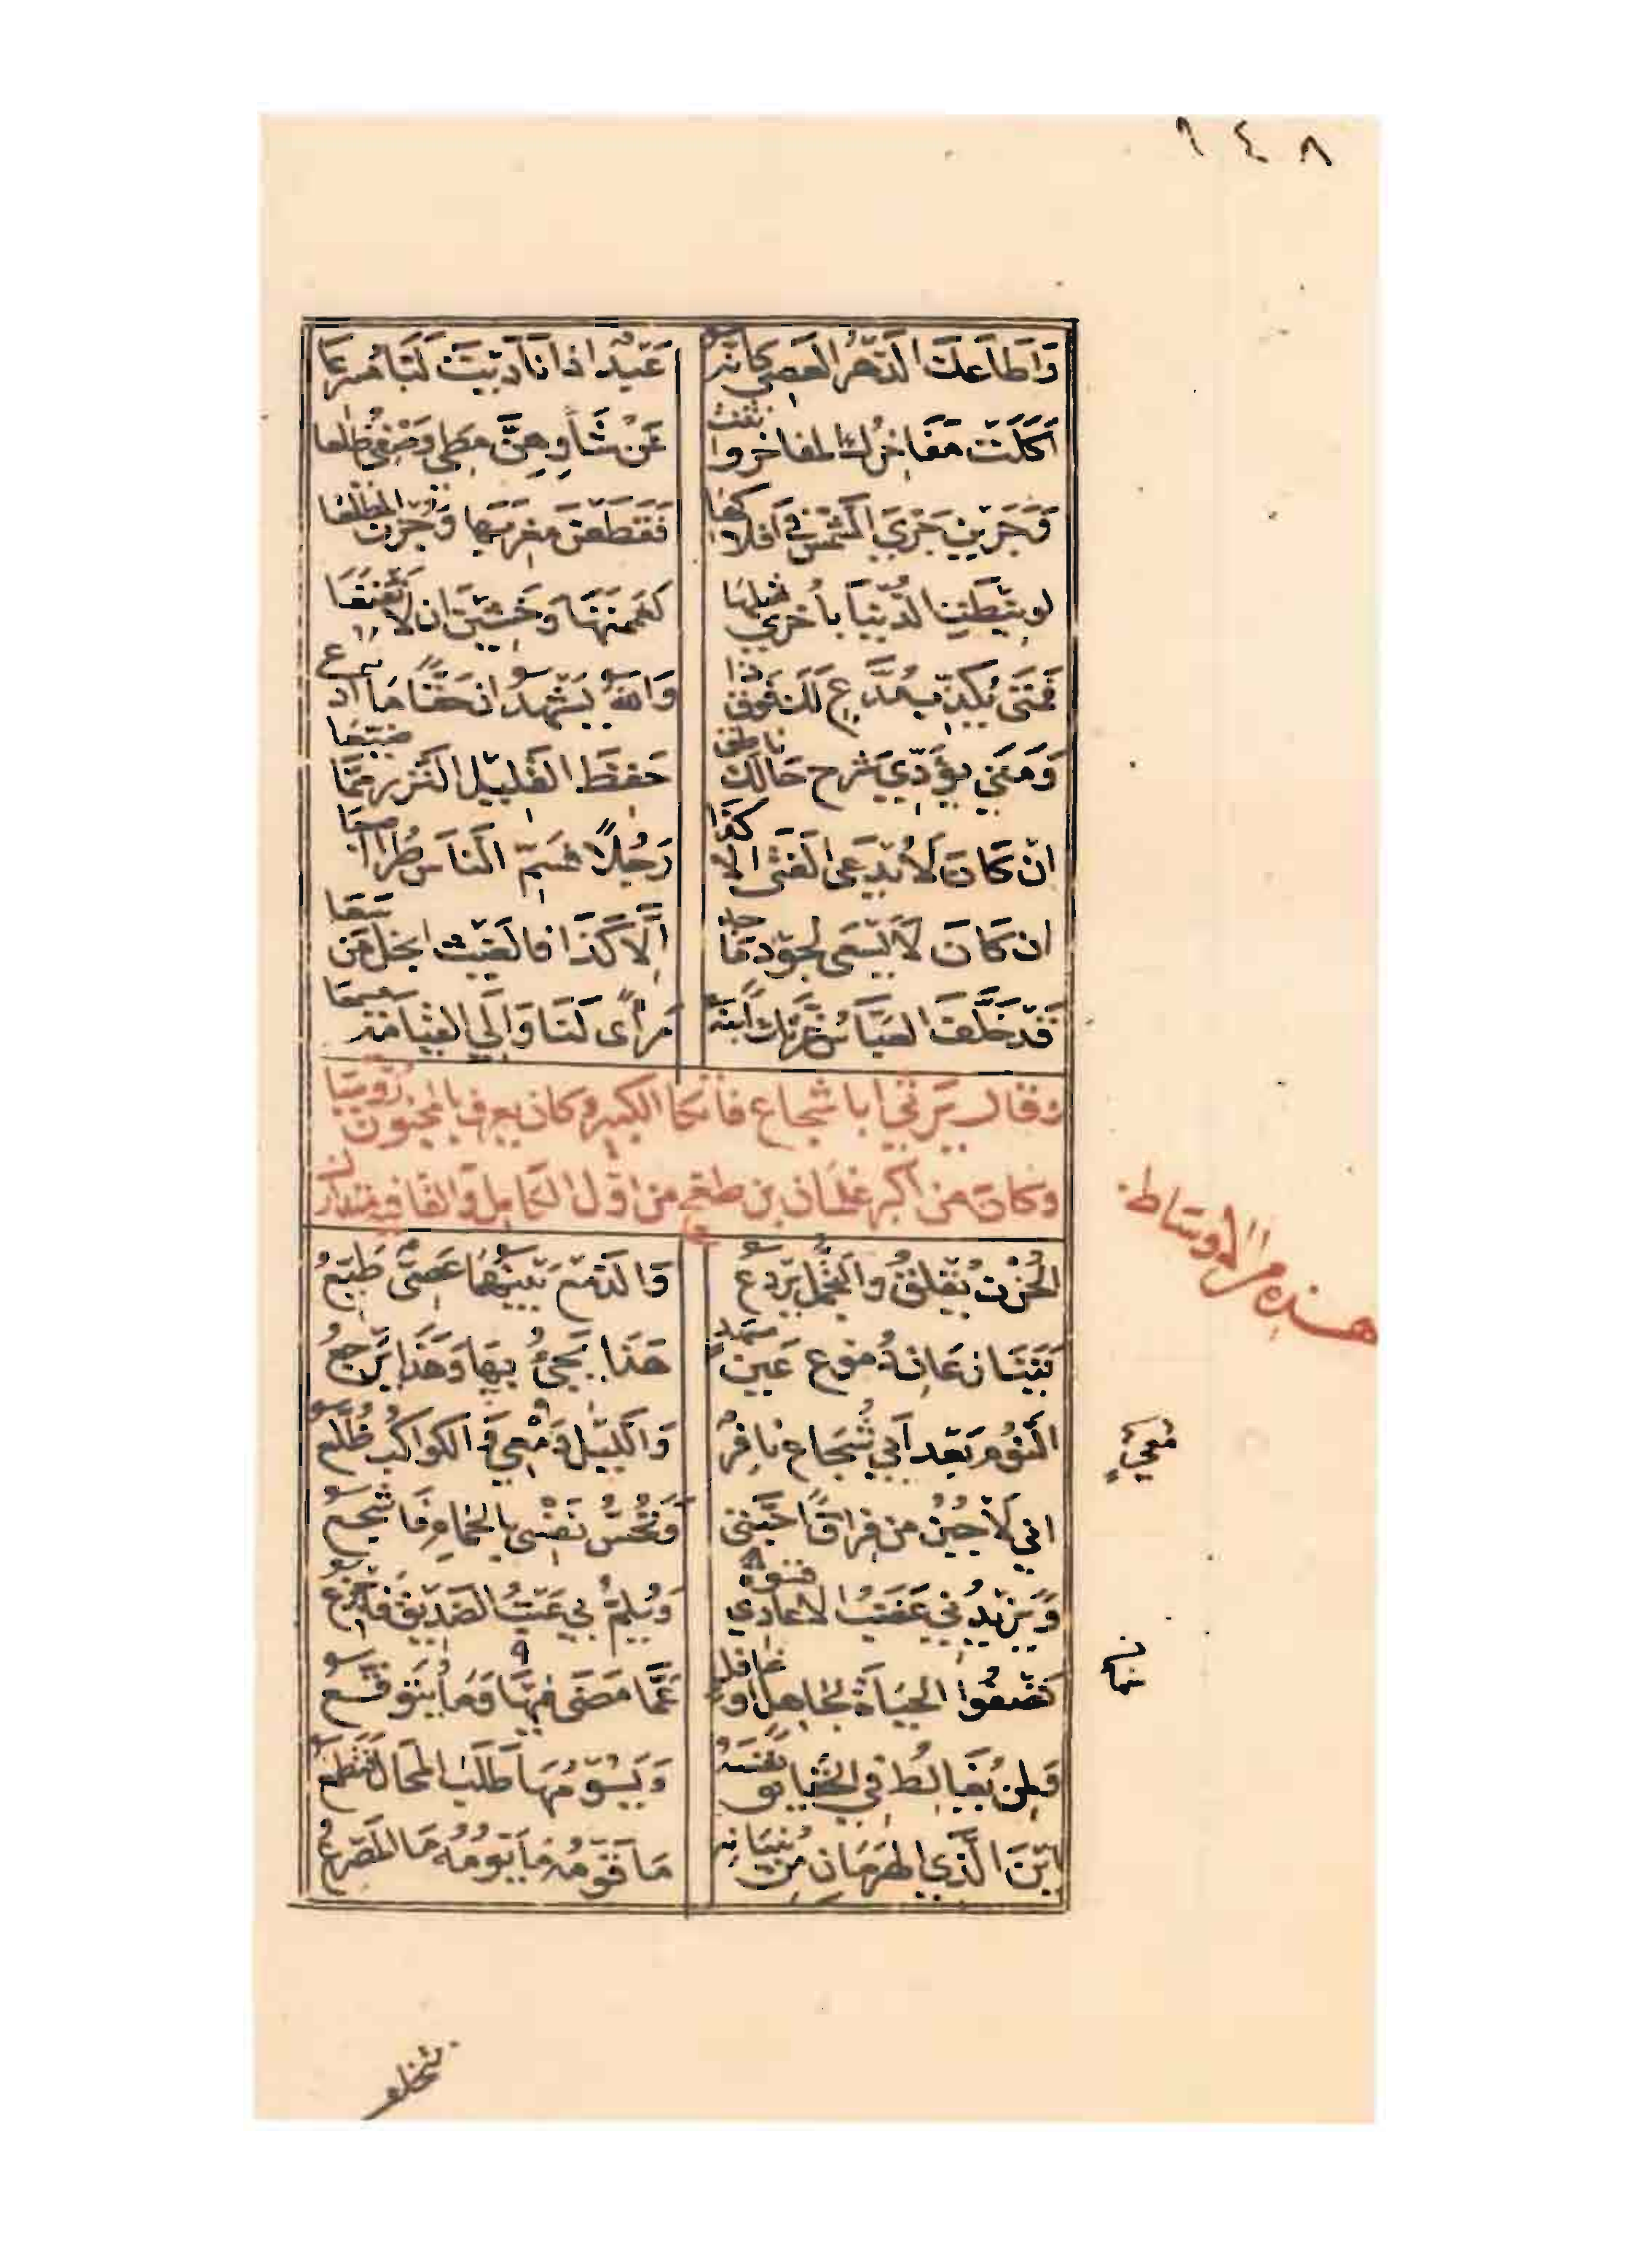 ١٤٨
وَاطاعكَ الدّهرُ العصي كانه عَبْدٌ اذا نادَيْتَ لَبّا مُسرعَا
اَكَلَتْ مَفَاخِرُكَ المفاخر وانثنت عَنْ شَأوِهِنَّ مطي وَصْفي ظلعا
وَجَرَيْنَ جَرْيَ الشّمْسِ في افلاكها فَقَطَعْنَ مغربَهَا وَجُزْنَ المطْلعَا
لو نيطَتِ الدُّنيَا بأخرى مثلهَا لعَممنَهَا وَخَشِينَ ان لا تَقْنَعَا
فمَتى يُكَذَّبُ مُدَّعٍ لَكَ فوق ذا وَاللهُ يَشهدُ ان حَقًّا مَا ادّعى
وَمَتى يُؤَدّي شرح حَالكَ ناطق حَفِظَ القَلِيل النَّزر ممَّا ضَيّعَا
انْ كَانَ لَا يُدْعَى الفَتَى الا كذَا رَجُلًا فسَمّ النَّاسَ طُرًّا اصبعَا
ان كَانَ لَا يَسْعَى لجود مَاجد اِلَّا كَذَا فالغَيْث ابخل مَن سَعَا
قَدْ خَلَّفَ العَبّاسُ غُرَّتَكَ ابنَهُ مرأًى لَنَا وَالي القيَامَة مسمعَا
وَقال يَرثي ابا شجاع فاتكا الكبير وكان يعرف بالمجنون رُوميّا
وكان من اكبر غلمان بن طغج من اول الكامل والقافيه متدارك
هذه من الاوساط
الحُزْنُ يُقلقُ والتّجَمُّلُ يَردعُ وَالدّمْعُ بَيْنهُمَا عَصِيٌّ طَيّعُ
يَتَنَازَعَانِ دُمُوعَ عَيْنِ مسَهّدٍ هَذَا يَجيُ بهَا وَهَذَا يَرْجعُ
النَّوْمُ بَعْد اَبي شُجَاعٍ نافِرٌ وَاللّيْلُ مُعْيٍ وَالكواكبُ ظُلَّعُ
مُعيٍ
اني لأجْبُنُ من فِراق احبّتي وَتُحسّ نَفْسي بالحمامِ فَاشجعُ
وَيَزيدُني غضَبُ الاعادي قسوةً وَيُلِمُّ بي عَتْبُ الصَّديقِ فاجزعُ
تصفُوا الحيَاةُ لجاهلٍ او غافلٍ عَمَّا مَضَى فِيهَا وَمَا يُتَوَقّعُ
وَلمن يُغَالِطُ في الحقايق نفسَهُ وَيَسُوْمُهَا طَلَبَ المحَالِ فتطمعُ
اَيْنَ الَّذي الهَرَمَانِ مِنْ بُنيَانِهِ مَا قَوْمُهُ مَا يَوْمُهُ مَا المَصْرعُ
تتخلف